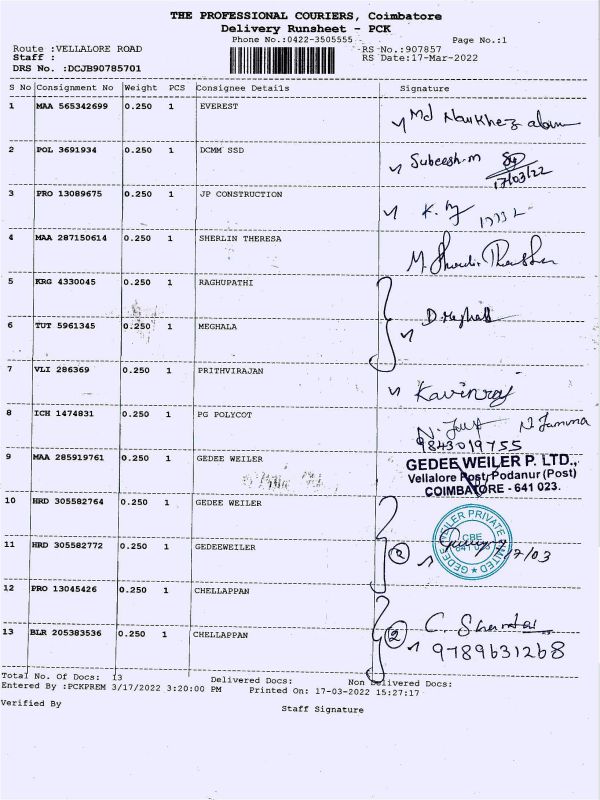 THE PROFESSIONAL COURIERS, Coimbatore
Delivery Runsheet - PCK
Phone No.:0422-3505555 Page No.:1
Route :VELLALORE ROAD RS No.:907857
Staff : RS Date:17-Mar-2022
DRS No. :DCJB90785701
S No Consignment No Weight PCS Consignee Details Signature
1 MAA 565342699 0.250 1 EVEREST Md Naukhez alam
2 POL 3691934 0.250 1 DCMM SSD Subeesh.m
17/03/22
3 PRO 13089675 0.250 1 JP CONSTRUCTION
4 MAA 287150614 0.250 1 SHERLIN THERESA
5 KRG 4330045 0.250 1 RAGHUPATHI
6 TUT 5961345 0.250 1 MEGHALA
7 VLI 286369 0.250 1 PRITHVIRAJAN Kavinraj
8 ICH 1474831 0.250 1 PG POLYCOT N. Jamuna
9843019755
9 MAA 285919761 0.250 1 GEDEE WEILER GEDEE WEILER P. LTD.,
Vellalore Post, Podanur (Post)
COIMBATORE - 641 023.
10 HRD 305582764 0.250 1 GEDEE WEILER
GEDEE WEILER PRIVATE LIMITED
CBE
641 023
11 HRD 305582772 0.250 1 GEDEEWEILER 2
12 PRO 13045426 0.250 1 CHELLAPPAN
13 BLR 205383536 0.250 1 CHELLAPPAN 2 C.
9789631268
Total No. Of Docs: 13 Delivered Docs: Non Delivered Docs:
Entered By :PCKPREM 3/17/2022 3:20:00 PM Printed On: 17-03-2022 15:27:17
Verified By Staff Signature